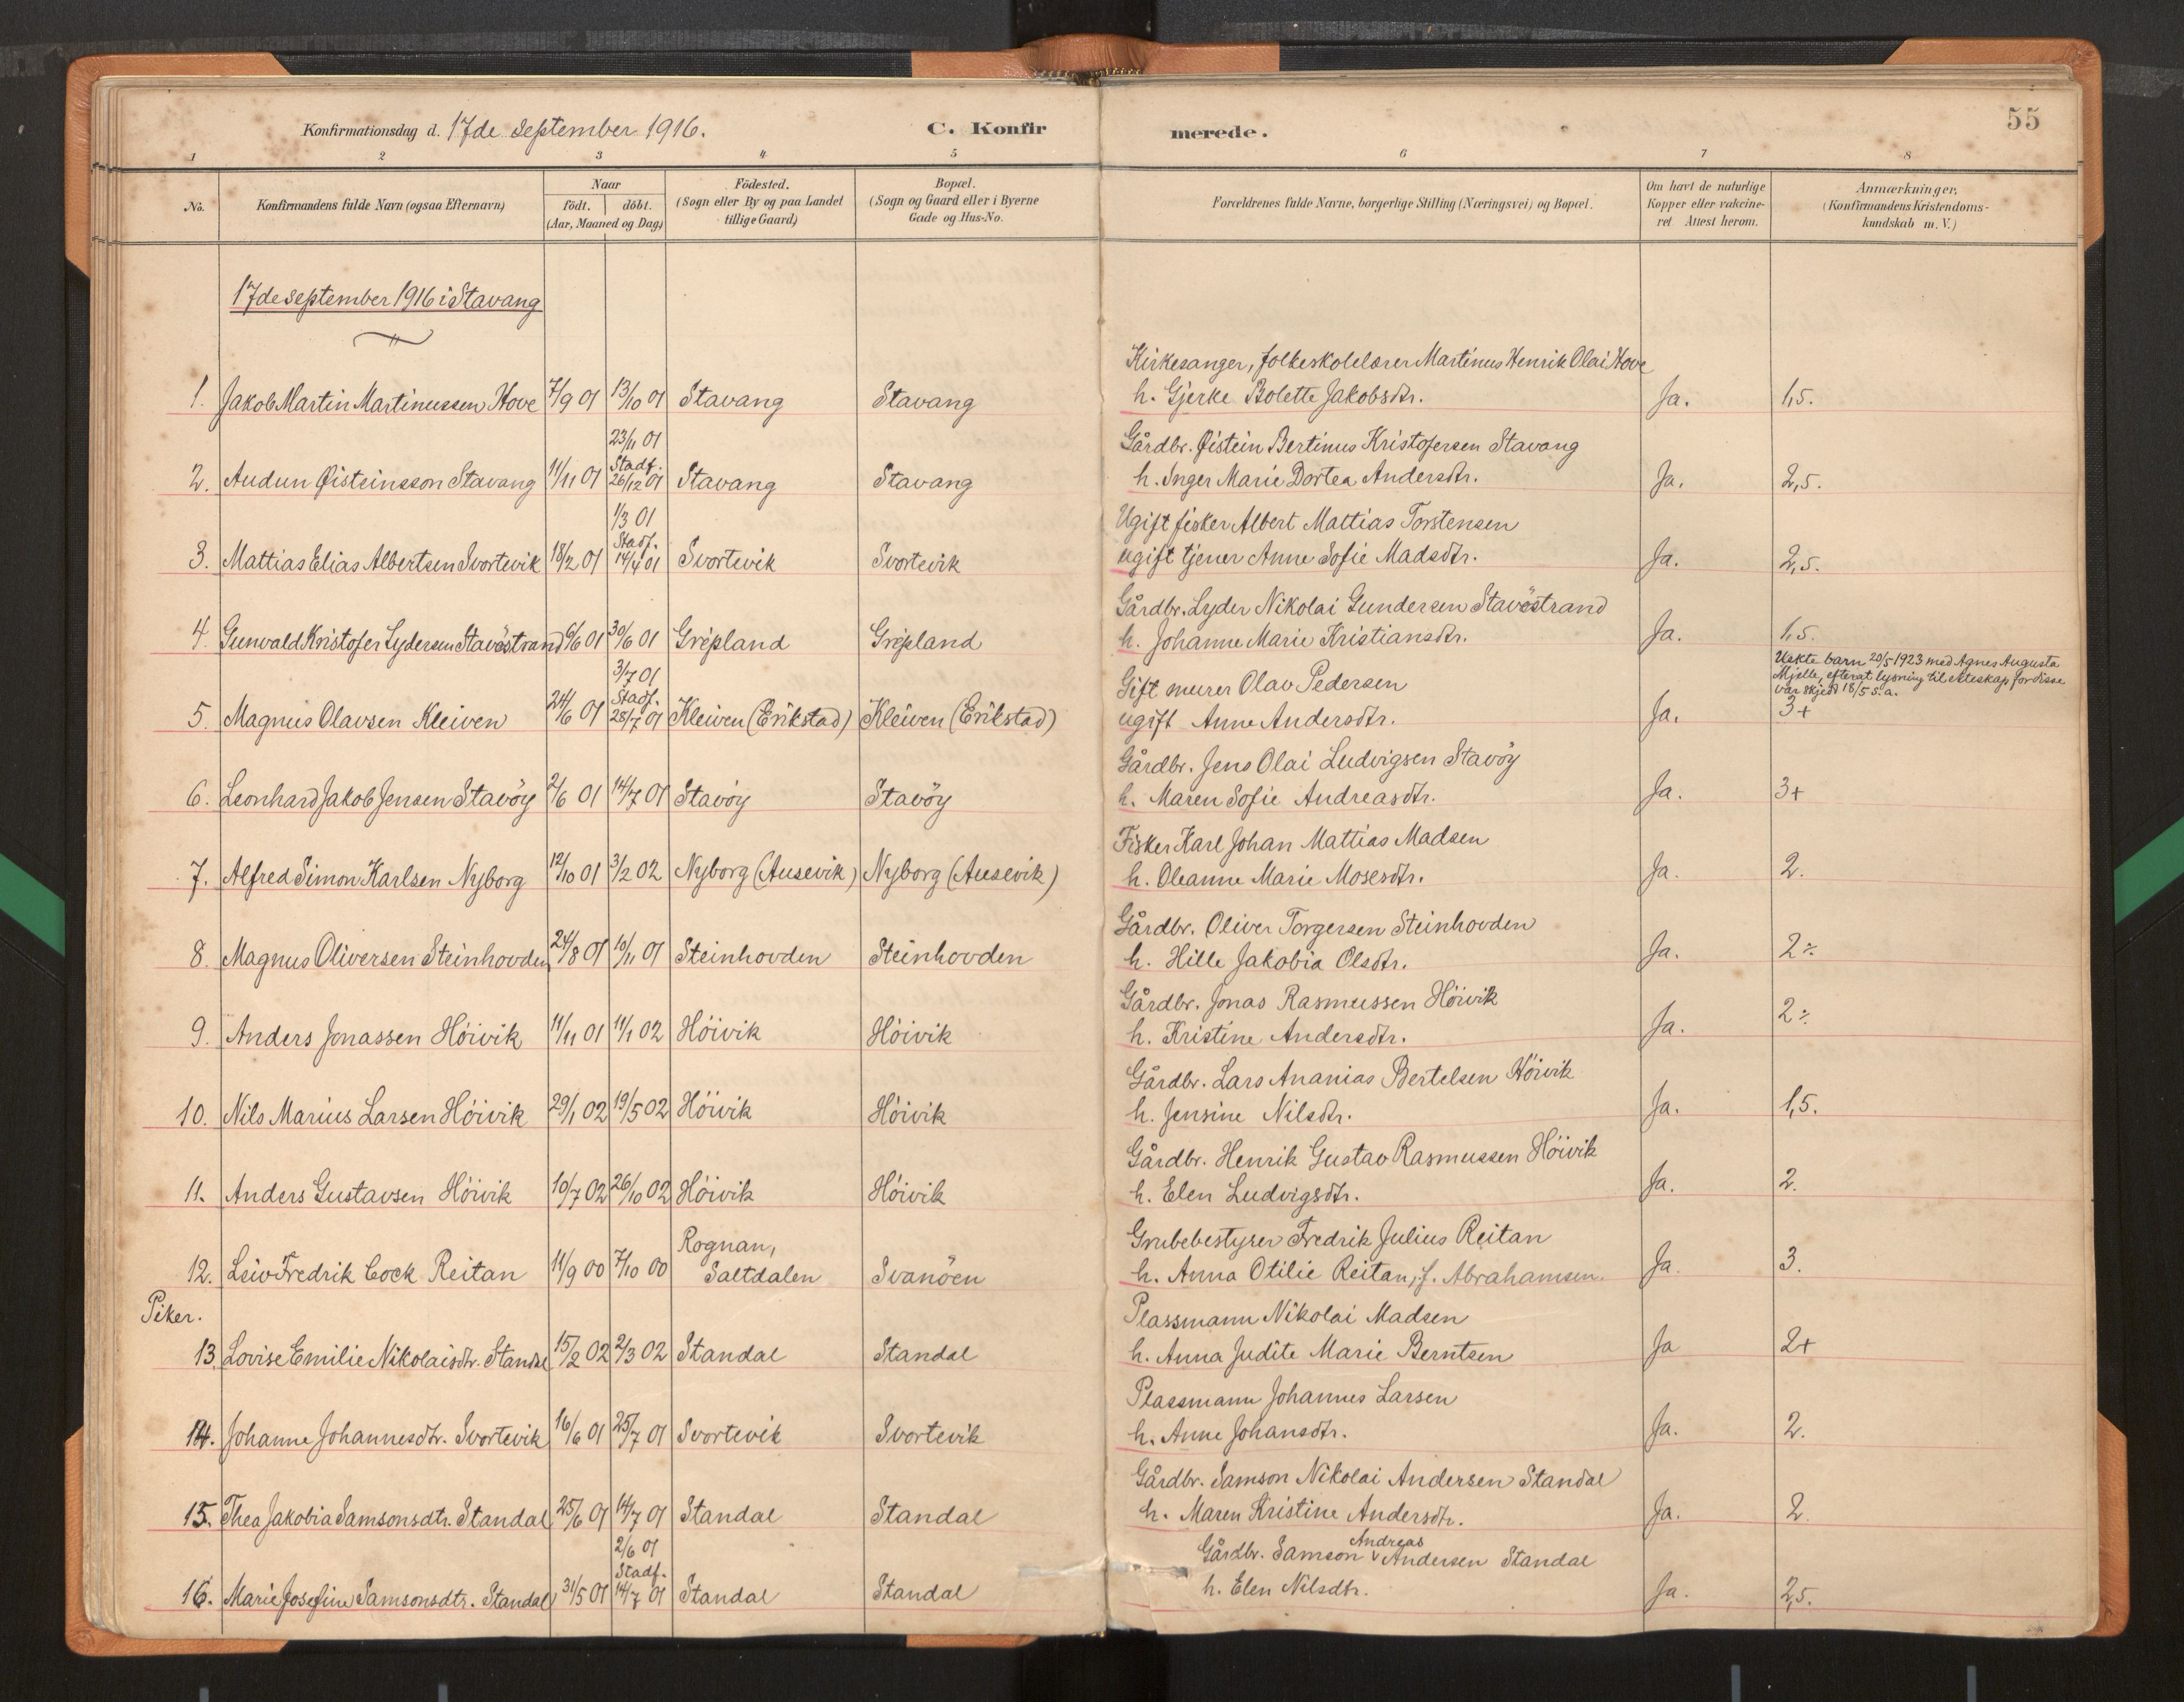 55
Konfirmationsdag d. 17de september 1916. C. Konfirmerede.
1 2 3 4 5 6 7 8
No.
Konfirmandens fulde Navn (ogsaa Efternavn)
Naar
födt. döbt.
(Aar, Maaned og Dag)
Födested.
(Sogn eller By og paa Landet
tillige Gaard)
Bopæl.
(Sogn og Gaard eller i Byerne
Gade og Hus-No.
Forældrenes fulde Navne, borgerlige Stilling (Næringsvei) og Bopæl.
Om havt de naturlige
Kopper eller vakcine-
ret Attest herom.
Anmærkninger,
(Konfirmandens Kristendoms-
kundskab m. V.)
17de september 1916 i Stavang
Kirkesanger, folkeskolelærer Martinus Henrik Olai Hove
1. Jakob Martin Martinussen Hove 7/9 01 13/10 01 Stavang Stavang h. Gjerke Bolette Jakobsdtr. Ja. 1,5.
23/11 01 Gårdbr. Øistein Bertinus Kristofersen Stavang
Stadf.
2. Audun Øisteinsson Stavang 11/11 01 26/12 01 Stavang Stavang h. Inger Marie Dortea Andersdtr. Ja. 2,5.
1/3 01 Ugift fisker Albert Mattias Torstensen
Stadf.
3. Mattias Elias Albertsen Svortevik 18/2 01 14/4 01 Svortevik Svortevik ugift tjener Anne Sofie Madsdtr. Ja. 2,5.
Gårdbr. Lyder Nikolai Gundersen Stavöstrand
4. Gunvald Kristofer Lydersen Stavöstrand 6/6 01 30/6 01 Gripland Gripland h. Johanne Marie Kristiansdtr. Ja. 1,5.
Uekte barn 20/5 1923 med Agnes Augusta
Mjelle, efterat lysning til ekteskap for disse
var skjedd 18/5 s.a.
3/7 01 Gift murer Olav Pedersen
Stadf.
5. Magnus Olavsen Kleiven 24/6 01 28/7 01 Kleiven (Erikstad) Kleiven (Erikstad) ugift Anne Andersdtr. Ja. 3+
Gårdbr. Jens Olai Ludvigsen Stavöy
6. Leonhard Jakob Jensen Stavöy 2/6 01 14/7 01 Stavöy Stavöy h. Maren Sofie Andreasdtr. Ja. 3+
Fisker Karl Johan Mattias Madsen
7. Alfred Simon Karlsen Nyborg 12/10 01 3/2 02 Nyborg (Ausevik) Nyborg (Ausevik) h. Oleanne Marie Mosesdtr. Ja. 2.
Gårdbr. Oliver Torgersen Steinhovden
8. Magnus Oliversen Steinhovden 24/8 01 10/11 01 Steinhovden Steinhovden h. Hille Jakobia Olsdtr. Ja. 2÷
Gårdbr. Jonas Rasmussen Höivik
9. Anders Jonassen Höivik 11/11 01 11/1 02 Höivik Höivik h. Kristine Andersdtr. Ja. 2÷
Gårdbr. Lars Ananias Bertelsen Höivik
10. Nils Marius Larsen Höivik 29/1 02 19/5 02 Höivik Höivik h. Jensine Nilsdtr. Ja. 1,5.
Gårdbr. Henrik Gustav Rasmussen Höivik
11. Anders Gustavsen Höivik 10/7 02 26/10 02 Höivik Höivik h. Elen Ludvigsdtr. Ja. 2.
Rognan, Grubebestyrer Fredrik Julius Reitan
12. Leiv Fredrik Cock Reitan 11/9 00 7/10 00 Saltdalen Svanöen h. Anna Otilie Reitan, f. Abrahamsen. Ja. 3.
Piker.
Plassmann Nikolai Madsen
13. Lovise Emilie Nikolaisdtr. Standal 15/2 02 2/3 02 Standal Standal h. Anna Judite Marie Berntsen Ja 2+
Plassmann Johannes Larsen
14. Johanne Johannesdtr. Svortevik 16/6 01 25/7 01 Svortevik Svortevik h. Anne Johansdtr. Ja. 2.
Gårdbr. Samson Nikolai Andersen Standal
15. Thea Jakobia Samsonsdtr. Standal 25/6 01 14/7 01 Standal Standal h. Maren Kristine Andersdtr. Ja. 2
2/6 01 Gårdbr. Samson Andreas Andersen Standal
Stadf.
16. Marie Josefine Samsonsdtr. Standal 31/5 01 14/7 01 Standal Standal h. Elen Nilsdtr. Ja. 2,5.